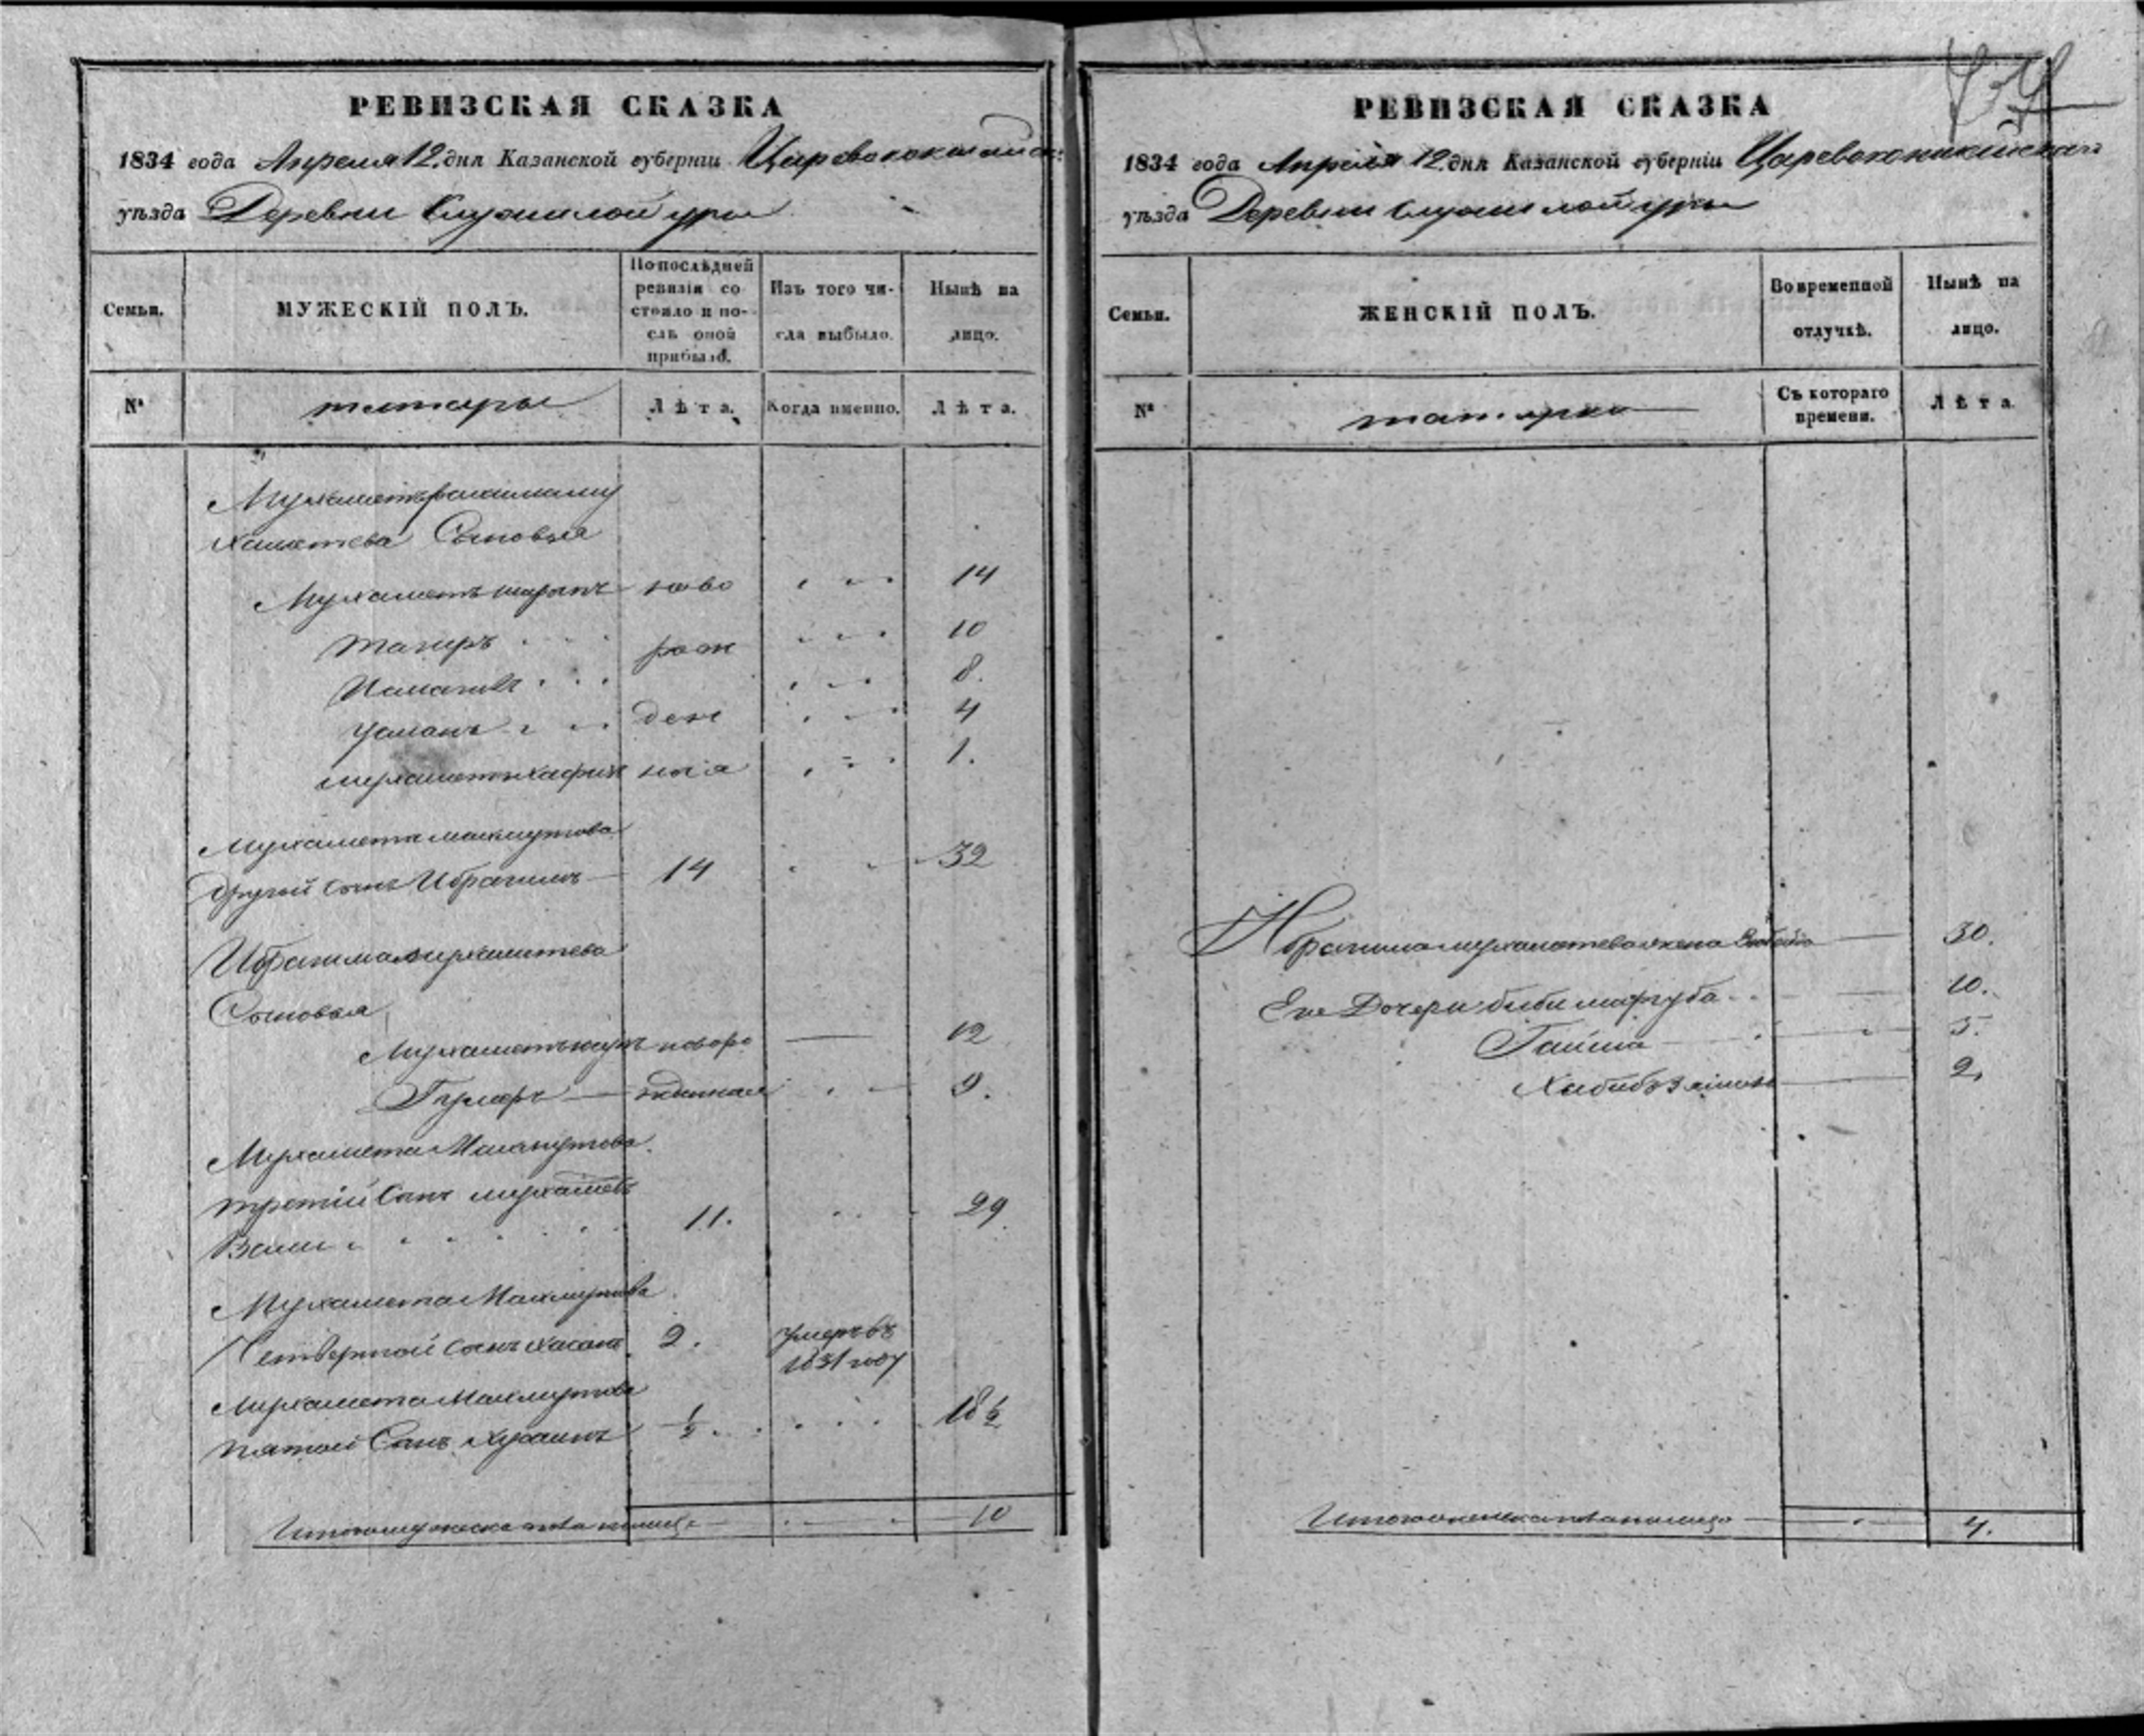 РЕВИЗСКАЯ СКАЗКА
1834 года Апреля 12 дня Казанской губерніи Царевококшайск
уѣзда Деревни Служилой уры
Семьи.
МУЖЕСКІЙ ПОЛЪ.
По послѣдней ревизіи состояло и послѣ оной прибыло.
Изъ того числа выбыло.
Нынѣ на лицо.
№
татары
Лѣта.
Когда именно.
Лѣта.
Сыновья
Мухаметъ шарапъ ново 14
Тагиръ рож 10
Исмагилъ 8.
Усманъ ден 4
ныя 1.
Мухамета махмутова
другой сынъ Ибрагимъ 14 32
Ибрагима мухаметева
Сыновья
новоро 12
Гумеръ жденныя 9.
Мухамета Махмутова
третій Сынъ
Вали 11. 29
Мухамета Махмутова
Четвертой сынъ хасанъ 2. умеръ въ
1831 году
Мухамета Махмутова
пятой Сынъ хусаинъ 1/2 18 1/2
Итого мужеска пола на лицо 10
РЕВИЗСКАЯ СКАЗКА
1834 года Апреля 12 дня Казанской губерніи Царевококшайскаго
уѣзда Деревни Служилой уры
Семьи.
ЖЕНСКІЙ ПОЛЪ.
Во временной отлучкѣ.
Нынѣ на лицо.
№
татарки
Съ котораго времени.
Лѣта
Ибрагима мухаметева жена 30.
Его Дочери биби махруба 10.
Гайша 5.
2.
Итого женска пола на лицо 4.